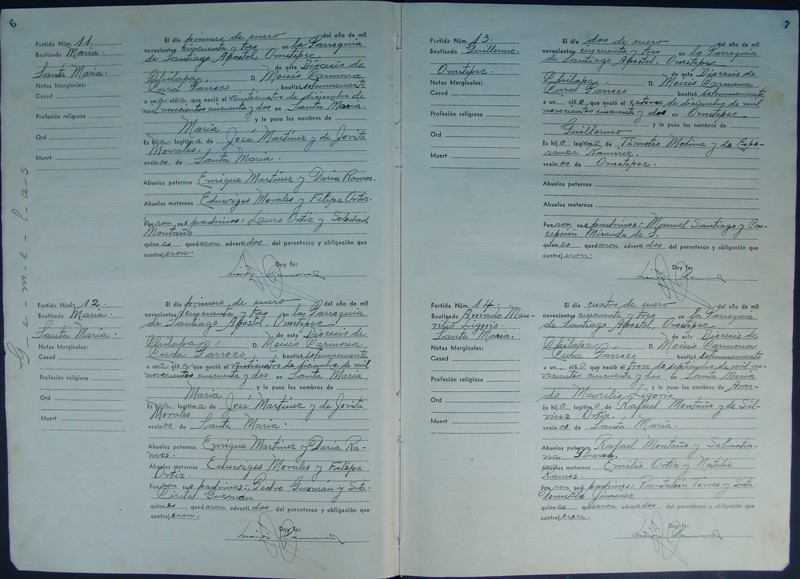 6
Partida Núm. 11.
Bautizado María.
Santa María.
Notas Marginales:
Casad
Profesión religiosa
Ord
Muert
El día primero de enero del año de mil
novecientos cincuenta y tres en la Parroquia
de Santiago Apóstol, Ometepec
de este Diócesis de
Chilapa, D. Moisés Carmona
Cura Párroco bautizó solemnemente
a un a niña que nació el veinticinco de diciembre de
mil novecientos cincuenta y dos en Santa María.
y le puso los nombres de
María
Es hija legítima de José Martínez y de Jovita
Morales.
vecinos de Santa María.
Abuelos paternos Enrique Martínez y Daria Ramos.
Abuelos maternos Eduwiges Morales y Filipa Ortiz.
Fueron sus padrinos: Lauro Ortiz y Soledad
Montaño
quienes quedaron advertidos del parentesco y obligación que
contrajeron.
Doy fe:
G-e-m-e-l-a-s
Partida Núm. 12.
Bautizado María.
Santa María.
Notas Marginales:
Casad
Profesión religiosa
Ord
Muert
El día primero de enero del año de mil
novecientos cincuenta y tres en la Parroquia
de Santiago Apóstol, Ometepec
de este Diócesis de
Chilapa, D. Moisés Carmona
Cura Párroco, bautizó solemnemente
a un a niña que nació el veinticinco de diciembre de mil
novecientos cincuenta y dos en Santa María
y le puso los nombres de
María
Es hija legítima de José Martínez y de Jovita
Morales
vecinos de Santa María.
Abuelos paternos Enrique Martínez y Daria Ra-
mos.
Abuelos maternos Eduwiges Morales y Filipa
Ortiz.
Fueron sus padrinos: Pedro Guzmán y Srta.
Guzmán
quienes quedaron advertidos del parentesco y obligación que
contrajeron.
Doy fe:
7
Partida Núm. 13.
Bautizado Guillermo.
Ometepec.
Notas Marginales:
Casad
Profesión religiosa
Ord
Muert
El día dos de enero del año de mil
novecientos cincuenta y tres en la Parroquia
de Santiago Apóstol, Ometepec
de este Diócesis de
Chilapa D. Moisés Carmona
Cura Párroco bautizó solemnemente
a un niño que nació el catorce de diciembre de mil
novecientos cincuenta y dos en Ometepec
y le puso los nombres de
Guillermo
Es hijo legítimo de Timoteo Molina y de Espe-
ranza Ramírez.
vecinos de Ometepec.
Abuelos paternos
Abuelos maternos
Fueron sus padrinos: Manuel Santiago y Con-
cepción Miranda de S.
quienes quedaron advertidos del parentesco y obligación que
contrajeron.
Doy fe:
Partida Núm. 14.
Bautizado Amado Mau-
rilio Ligorio
Santa María.
Notas Marginales:
Casad
Profesión religiosa
Ord
Muert
El día cuatro de enero del año de mil
novecientos cincuenta y tres en la Parroquia
de Santiago Apóstol, Ometepec
de este Diócesis de
Chilapa, D. Moisés Carmona
Cura Párroco bautizó solemnemente
a un niño que nació el trece de septiembre de mil no-
vecientos cincuenta y dos en Santa María
y le puso los nombres de Ama-
do Maurilio Ligorio
Es hijo legítimo de Rafael Montaño y de Sil-
vina Ortiz.
vecinos de Santa María.
Abuelos paternos Rafael Montaño y Sebastia-
na
Abuelos maternos Emilio Ortiz y Natalia
Ramos.
Fueron sus padrinos: Pantaleón Torres y Srta.
Jiménez
quienes quedaron advertidos del parentesco y obligación que
contrajeron.
Doy fe: